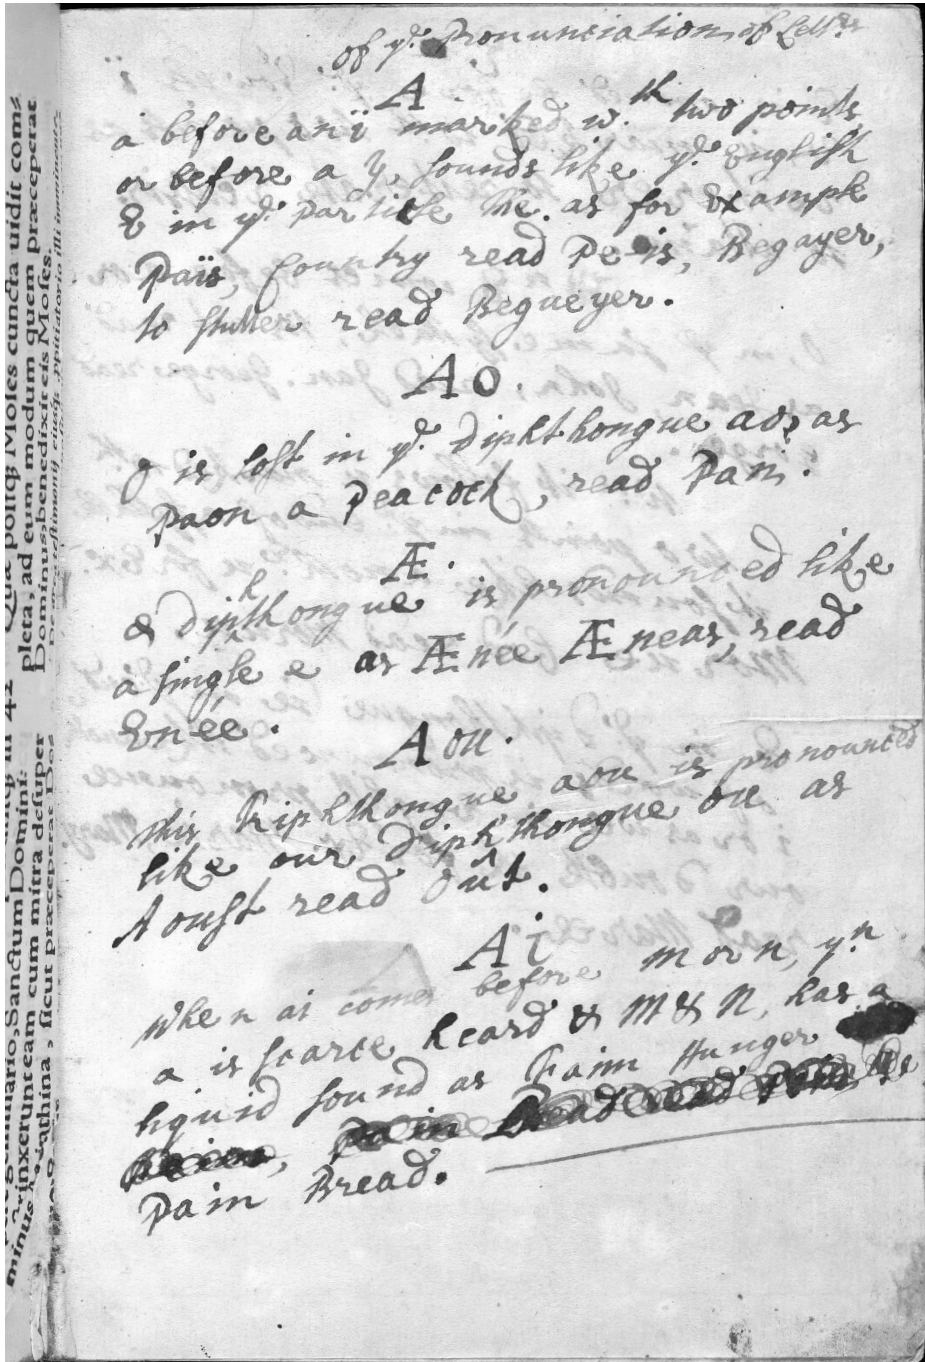 of yͤ Pronunciation of Lettʳˢ
A
a before an ï marked wᵗʰ two points
or before a y, sounds like yͤ English
E in yͤ particle the. as for Example
Païs, Country read Pe-is, Begayer,
to stutter read Begueyer.
Ao.
o is lost in yͤ Diphthongue ao, as
Paon a Peacock, read Pan.
Æ.
& Diphthongue is pronounced like
a single e as Ænée Æneas, read
Enée.
Aou.
this Triphthongue aou is pronounced
like our Diphthongue ou as
Aoust read Oût.
Ai
when ai comes before m or n, yⁿ
a is scarce heard & M & N, has a
liquid sound as Faim Hunger
Pain Bread.
pleta, ad eum modum quem præceperat
Dominus, benedixit eis Moses.
Sanctum Domini:
cum mitra desuper
sicut præceperat